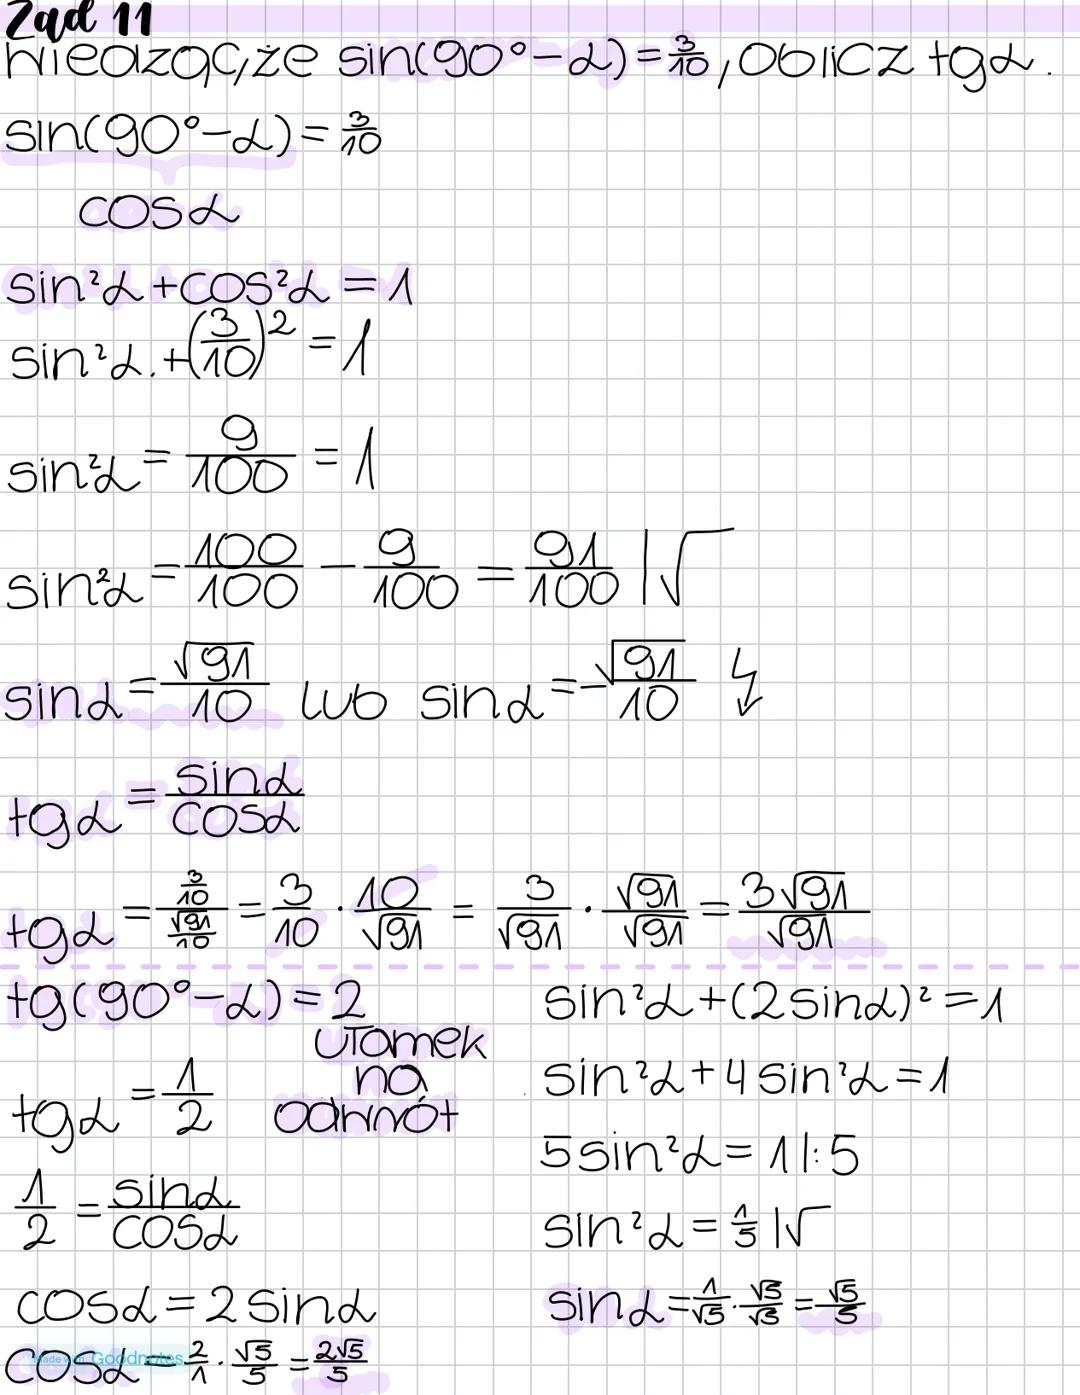 Zad 11
Wiedząc, że sin(90°-α)=3/10, oblicz tgα.
sin(90°-α)=3/10
cosα
sin²α+cos²α=1
sin²α.+(3/10)²=1
sin²α=9/100=1
sin²α=100/100-9/100=91/100 |√
sinα=√91/10 lub sinα=-√91/10 ↯
tgα=sinα/cosα
tgα=(3/10)/(√91/10)=3/10·10/√91=3/√91·√91/√91=3√91/√91
tg(90°-α)=2
ułamek
na
odwrót
tgα=1/2
1/2=sinα/cosα
cosα=2sinα
cosα=2/1·√5/5=2√5/5
sin²α+(2sinα)²=1
sin²α+4sin²α=1
5sin²α=1 |:5
sin²α=1/5 |√
sinα=1/√5·√5/√5=√5/5
Made with Goodnotes